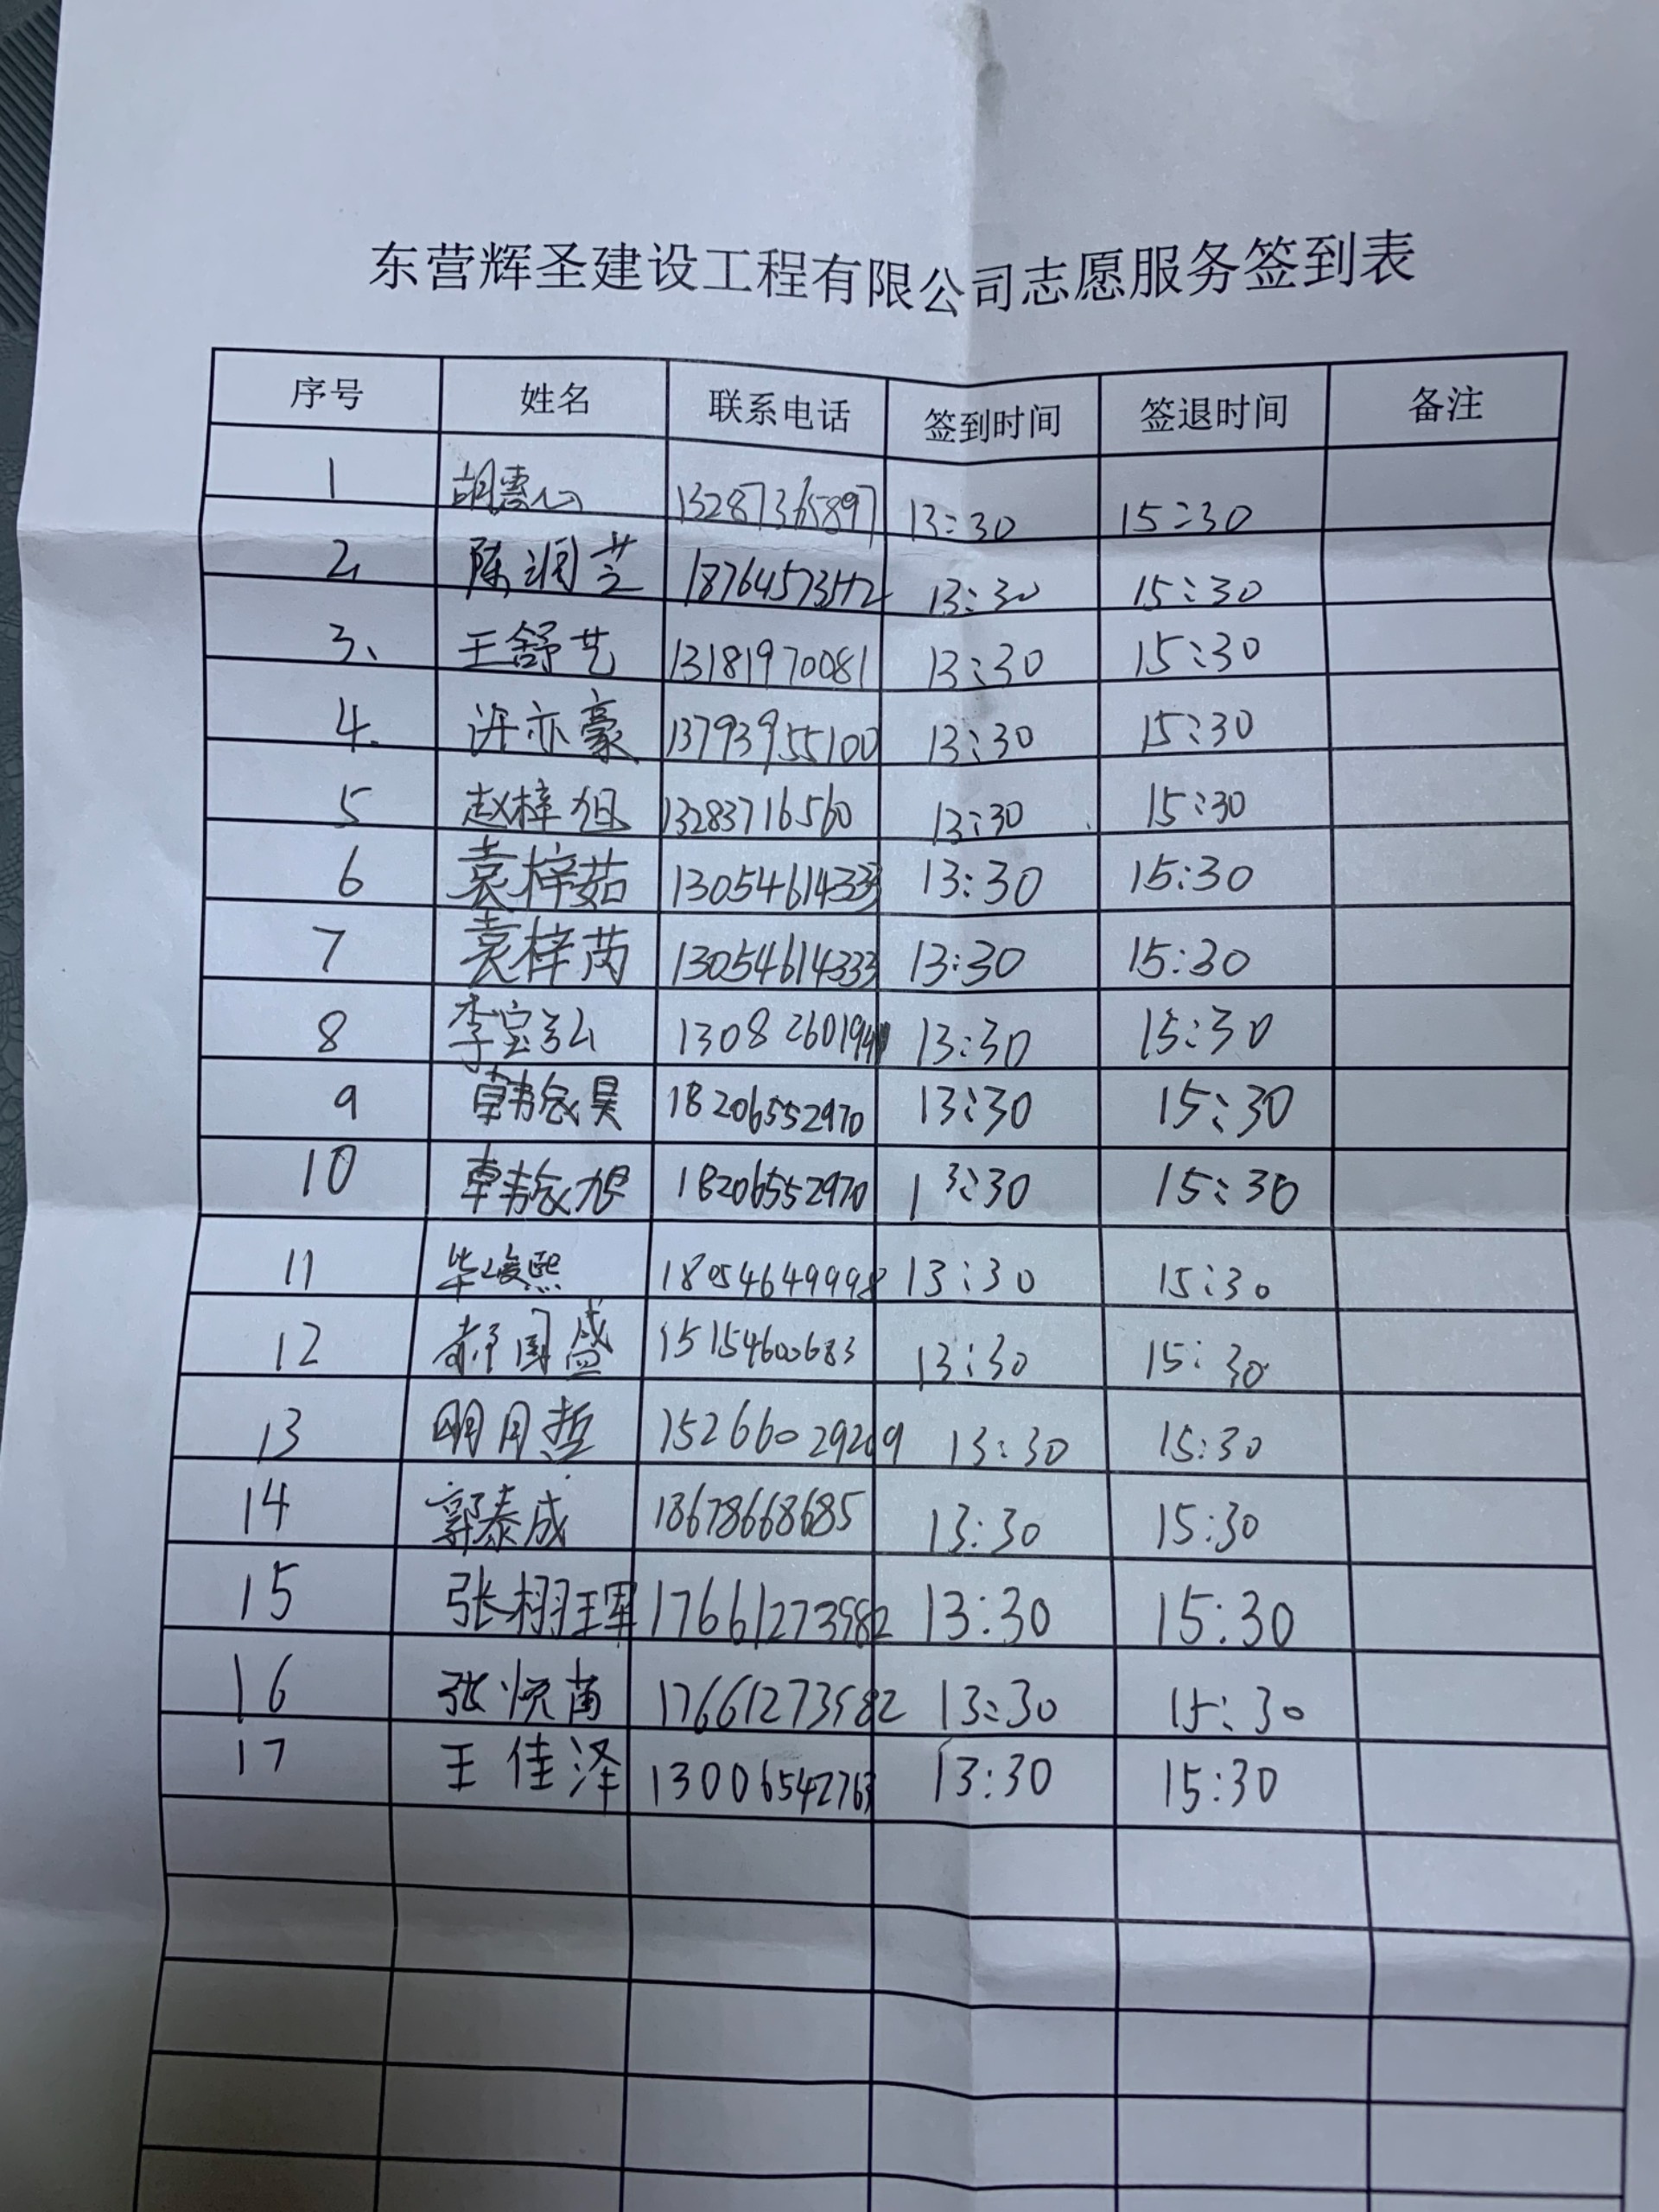 东营辉圣建设工程有限公司志愿服务签到表
序号 姓名 联系电话 签到时间 签退时间 备注
1 胡惠心 13287365897 13:30 15:30
2 陈润芝 13:30 15:30
3、 王舒艺 13181970081 13:30 15:30
4. 许亦豪 13793955100 13:30 15:30
5 赵梓旭 13283716560 13:30 15:30
6 袁梓茹 13054614333 13:30 15:30
7 袁梓芮 13054614333 13:30 15:30
8 李宝弘 13:30 15:30
9 18206552970 13:30 15:30
10 18206552970 13:30 15:30
11 毕峻熙 18054649998 13:30 15:30
12 郝国盛 15154600683 13:30 15:30
13 明月哲 15266029209 13:30 15:30
14 郭泰成 18678668685 13:30 15:30
15 张栩珲 17661273982 13:30 15:30
16 张悦菡 17661273982 13:30 15:30
17 王佳泽 13006542763 13:30 15:30